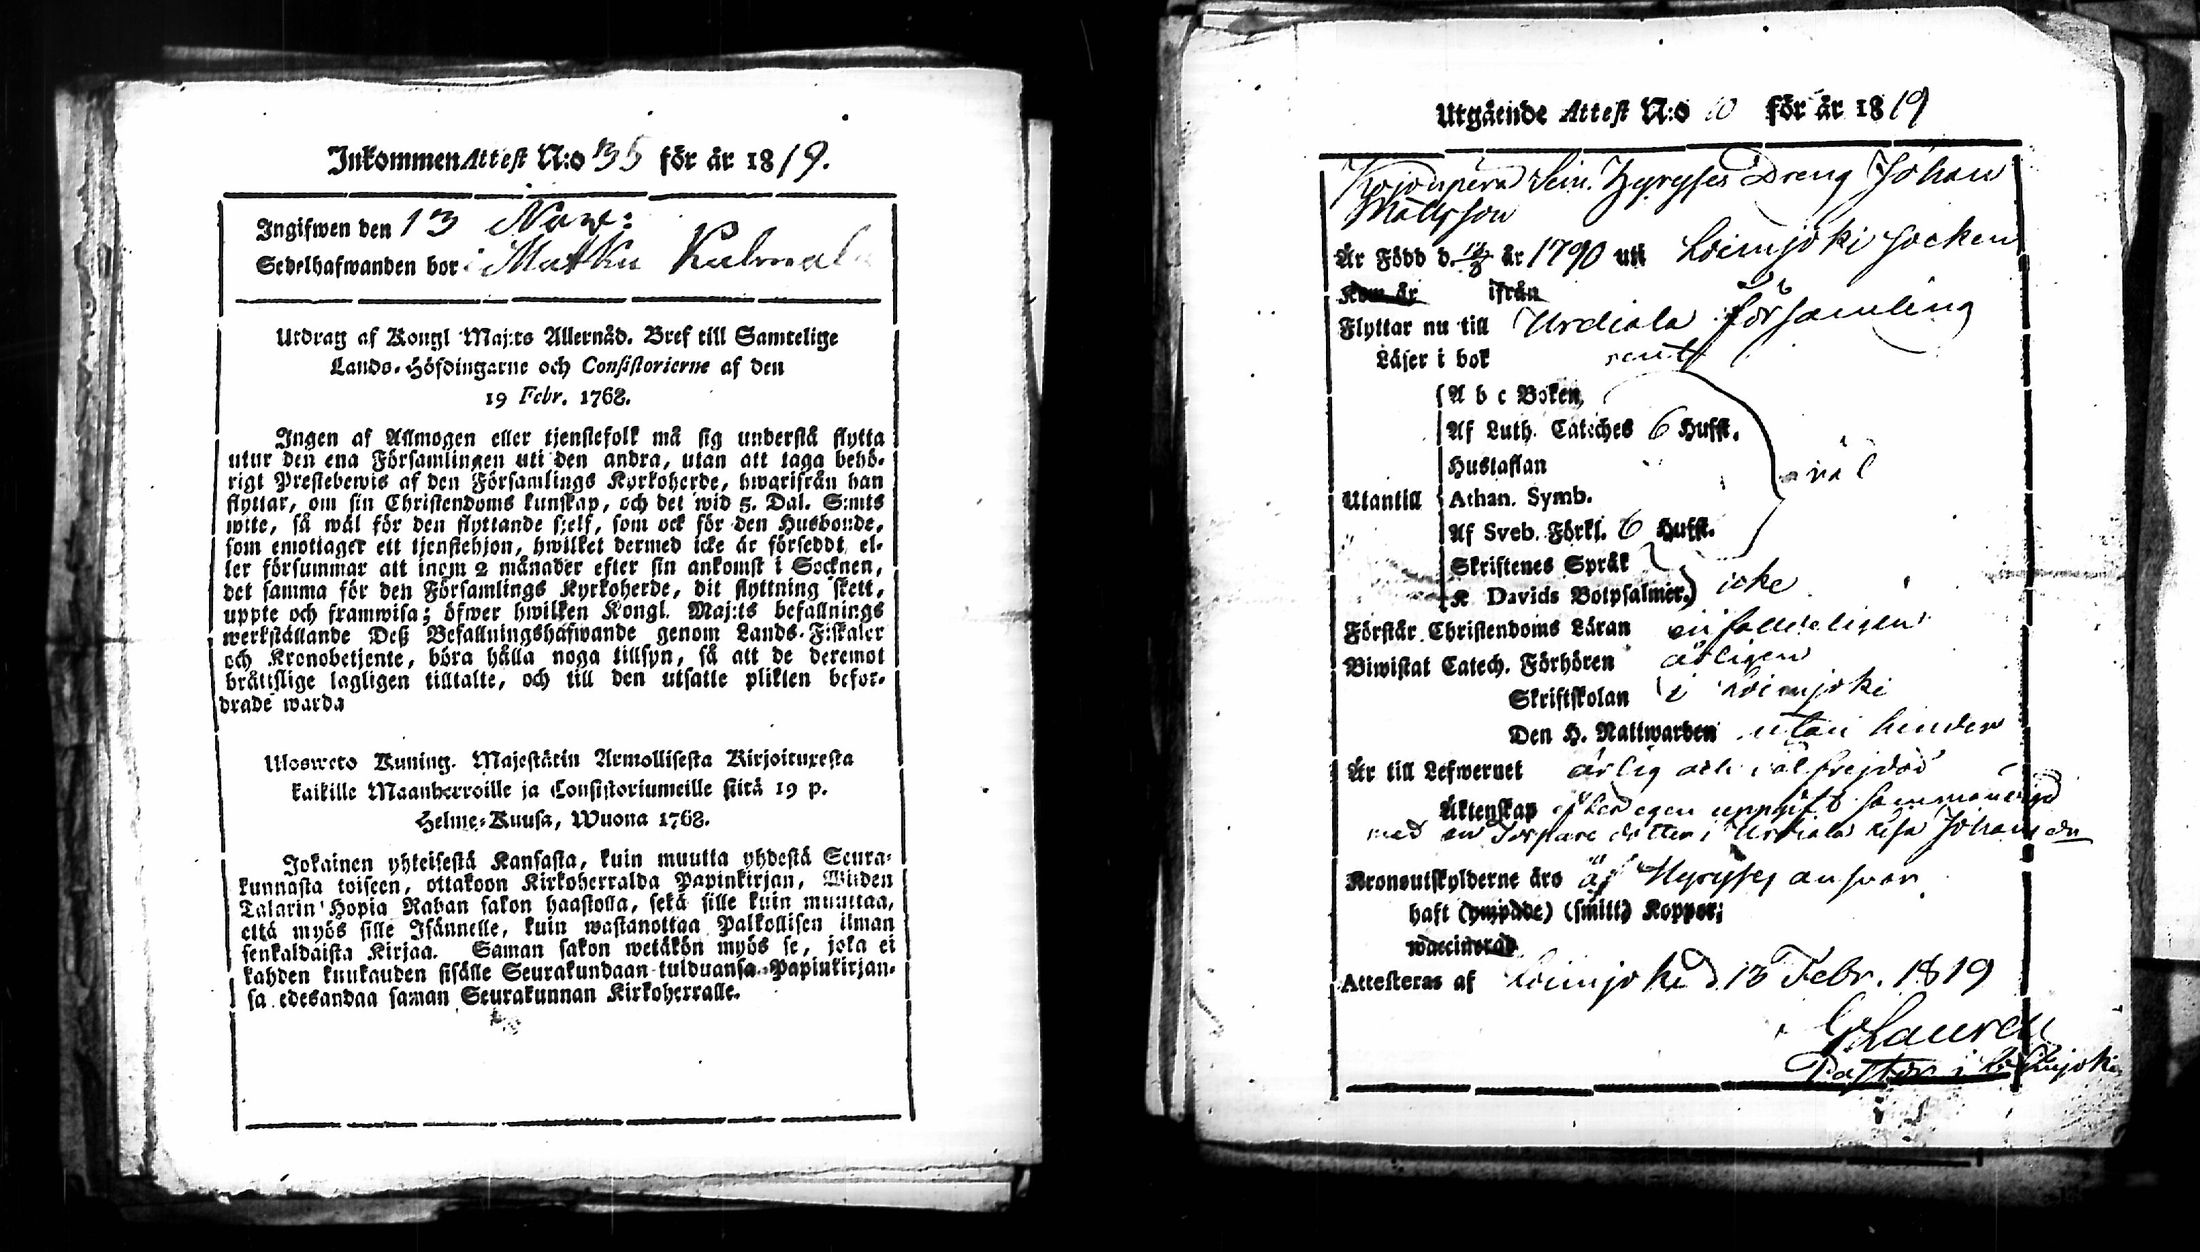 Inkommen Attest N:o 35 för år 1819.
Ingifwen den 13 Nov:
Sedelhafwanden bor i Matku Kulmala
Utdrag af Kongl Maj:ts Allernåd. Bref till Samtelige
Lands-Höfdingarne och Consistorierne af den
19 Febr. 1768.
Ingen af Allmogen eller tjenstefolk må sig understå flytta
utur den ena Församlingen uti den andra, utan att taga behö-
rigt Prestebewis af den Församlings Kyrkoherde, hwarifrån han
flyttar, om sin Christendoms kunskap, och det wid 5. Dal. S:mts
wite, så wäl för den flyttande sjelf, som ock för den Husbonde,
som emottager ett tjenstehjon, hwilket dermed icke är försedt, el-
ler försummar att inom 2 månader efter sin ankomst i Socknen,
det samma för den Församlings Kyrkoherde, dit flyttning skett,
uppte och framwisa; öfwer hwilken Kongl. Maj:ts befallnings
werkställande Deß Befallningshafwande genom Lands-Fiskaler
och Kronobetjente, böra hålla noga tillsyn, så att de deremot
bråttslige lagligen tilltalte, och till den utsatte plikten befor-
drade warda
Ulosweto Kuning. Majestätin Armollisesta Kirjoituxesta
kaikille Maanherroille ja Consistoriumeille siitä 19 p.
Helme-Kuusa, Wuona 1768.
Jokainen yhteisestä Kansasta, kuin muutta yhdestä Seura-
kunnasta toiseen, ottakoon Kirkoherralda Papinkirjan, Wiiden
Talarin Hopia Rahan sakon haastolla, sekä sille kuin muuttaa,
että myös sille Isännelle, kuin wastanottaa Palkollisen ilman
senkaldaista Kirjaa. Saman sakon wetäkön myös se, joka ei
kahden kuukauden sisälle Seurakundaan tulduansa Papinkirjan-
sa edesandaa saman Seurakunnan Kirkoherralle.
Utgående Attest N:o 10 för år 1819
Dreng Johan
Mattsson
Är Född d. år 1790 uti Loimjoki Socken
Kom år ifrån
Flyttar nu till Urdiala Församling
Läser i bok rent
A b c Boken
Af Luth. Cateches 6 Hufst.
Hustaflan
väl
Utantill Athan. Symb.
Af Sveb. Förkl. 6 Hufst.
Skriftenes Språk
K Davids Botpsalmer. icke
Förstår Christendoms Läran enfalldeligen
Biwistat Catech. Förhören årligen
Skriftskolan i Loimjoki
Den H. Nattwarden utan hinder
Är till Lefwernet ärlig och väl frejdad
Äktenskap efter egen uppgift sammanvigd
med en Torpare dotter i Urdiala Johansdr
Kronoutskylderne äro å Hyryses ansvar
haft (ympade) (smitt) Koppor;
waccinerad
Attesteras af Loimjoki d 13 Febr. 1819
G Lauren
Pastor i Loimjoki